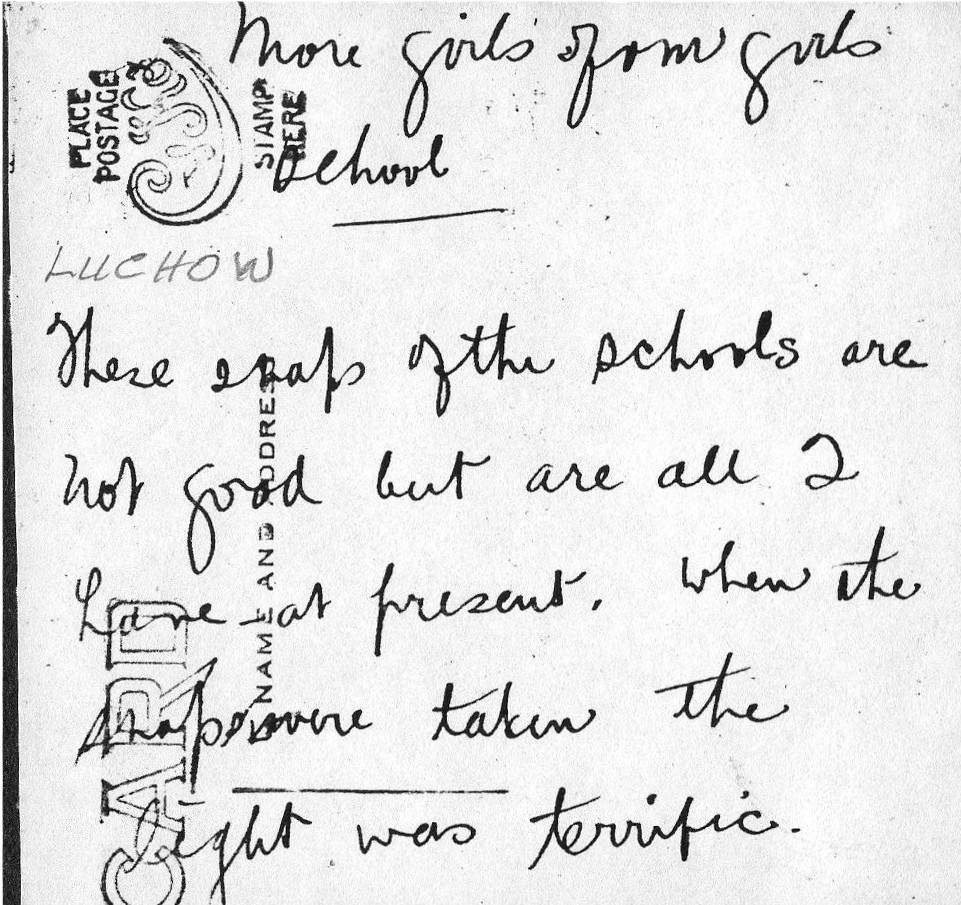 More girls of our girls
school
PLACE
POSTAGE
STAMP
HERE
LUCHOW
These snaps of the schools are
not good but are all I
have at present. When the
snaps were taken the
light was terrific.
NAME AND ADDRESS
CARD